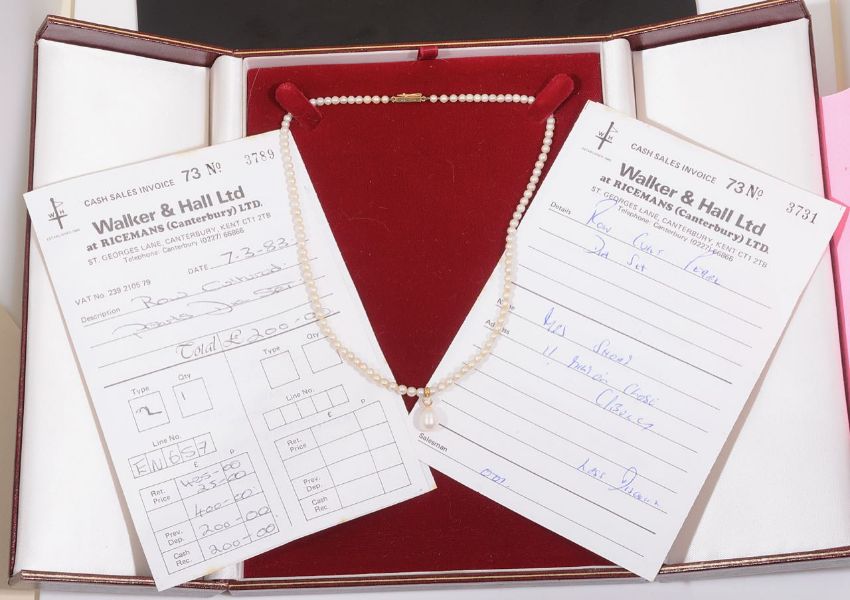 CASH SALES INVOICE 73 No 3789
W H
ESTABLISHED 1845
Walker & Hall Ltd
at RICEMANS (Canterbury) LTD.
ST. GEORGES LANE, CANTERBURY, KENT CT1 2TB
Telephone: Canterbury (0227) 66866
DATE 7-3-83
VAT No. 239 2105 79
Description Row Cultured
Pearls Dia Set
Total £200-00
Type Qty Type Qty
2 1
Line No. Line No.
EN657
£ D £ D
Ret. Price 425-00 Ret. Price
25-00
400-00
Prev. Dep. 200-00 Prev. Dep.
Cash Rec. 200-00 Cash Rec
CASH SALES INVOICE 73 No 3731
W H
Walker & Hall Ltd
at RICEMANS (Canterbury) LTD.
ST. GEORGES LANE, CANTERBURY, KENT CT1 2TB
Telephone: Canterbury (0227) 66866
Details Row Cult Pearl
Dia Set
Name Mrs
Address 11 Close
Salesman
Less Discount